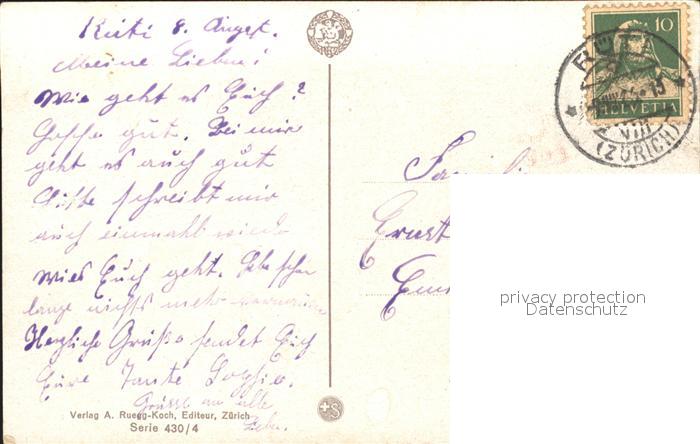 Rüti 8. August.
Meine Lieben!
Wie geht es Euch?
Hoffe gut. Bei mir
geht es auch gut
Bitte schreibt mir
auch einmahl wieder
wies Euch geht. Habe schon
lange nichts mehr vernommen
Herzliche Grüsse sendet Euch
Eure Tante Sophie.
Grüsse an alle
Lieben.
Verlag A. Ruegg-Koch, Editeur, Zürich
Serie 430/4
+S
10
HELVETIA
RÜTI
VIII
(ZÜRICH)
Familie
Ernst
privacy protection
Datenschutz